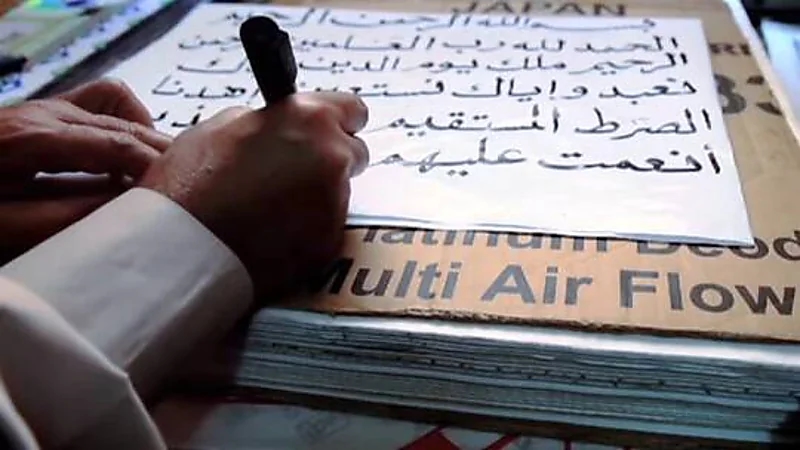 JAPAN
بسم الله الرحمن الرحيم
الحمد لله رب العلمين
الرحيم ملك يوم الدين
نعبد وإياك نستعين اهدنا
الصرط المستقيم
أنعمت عليهم
latinum Deod
Multi Air Flow